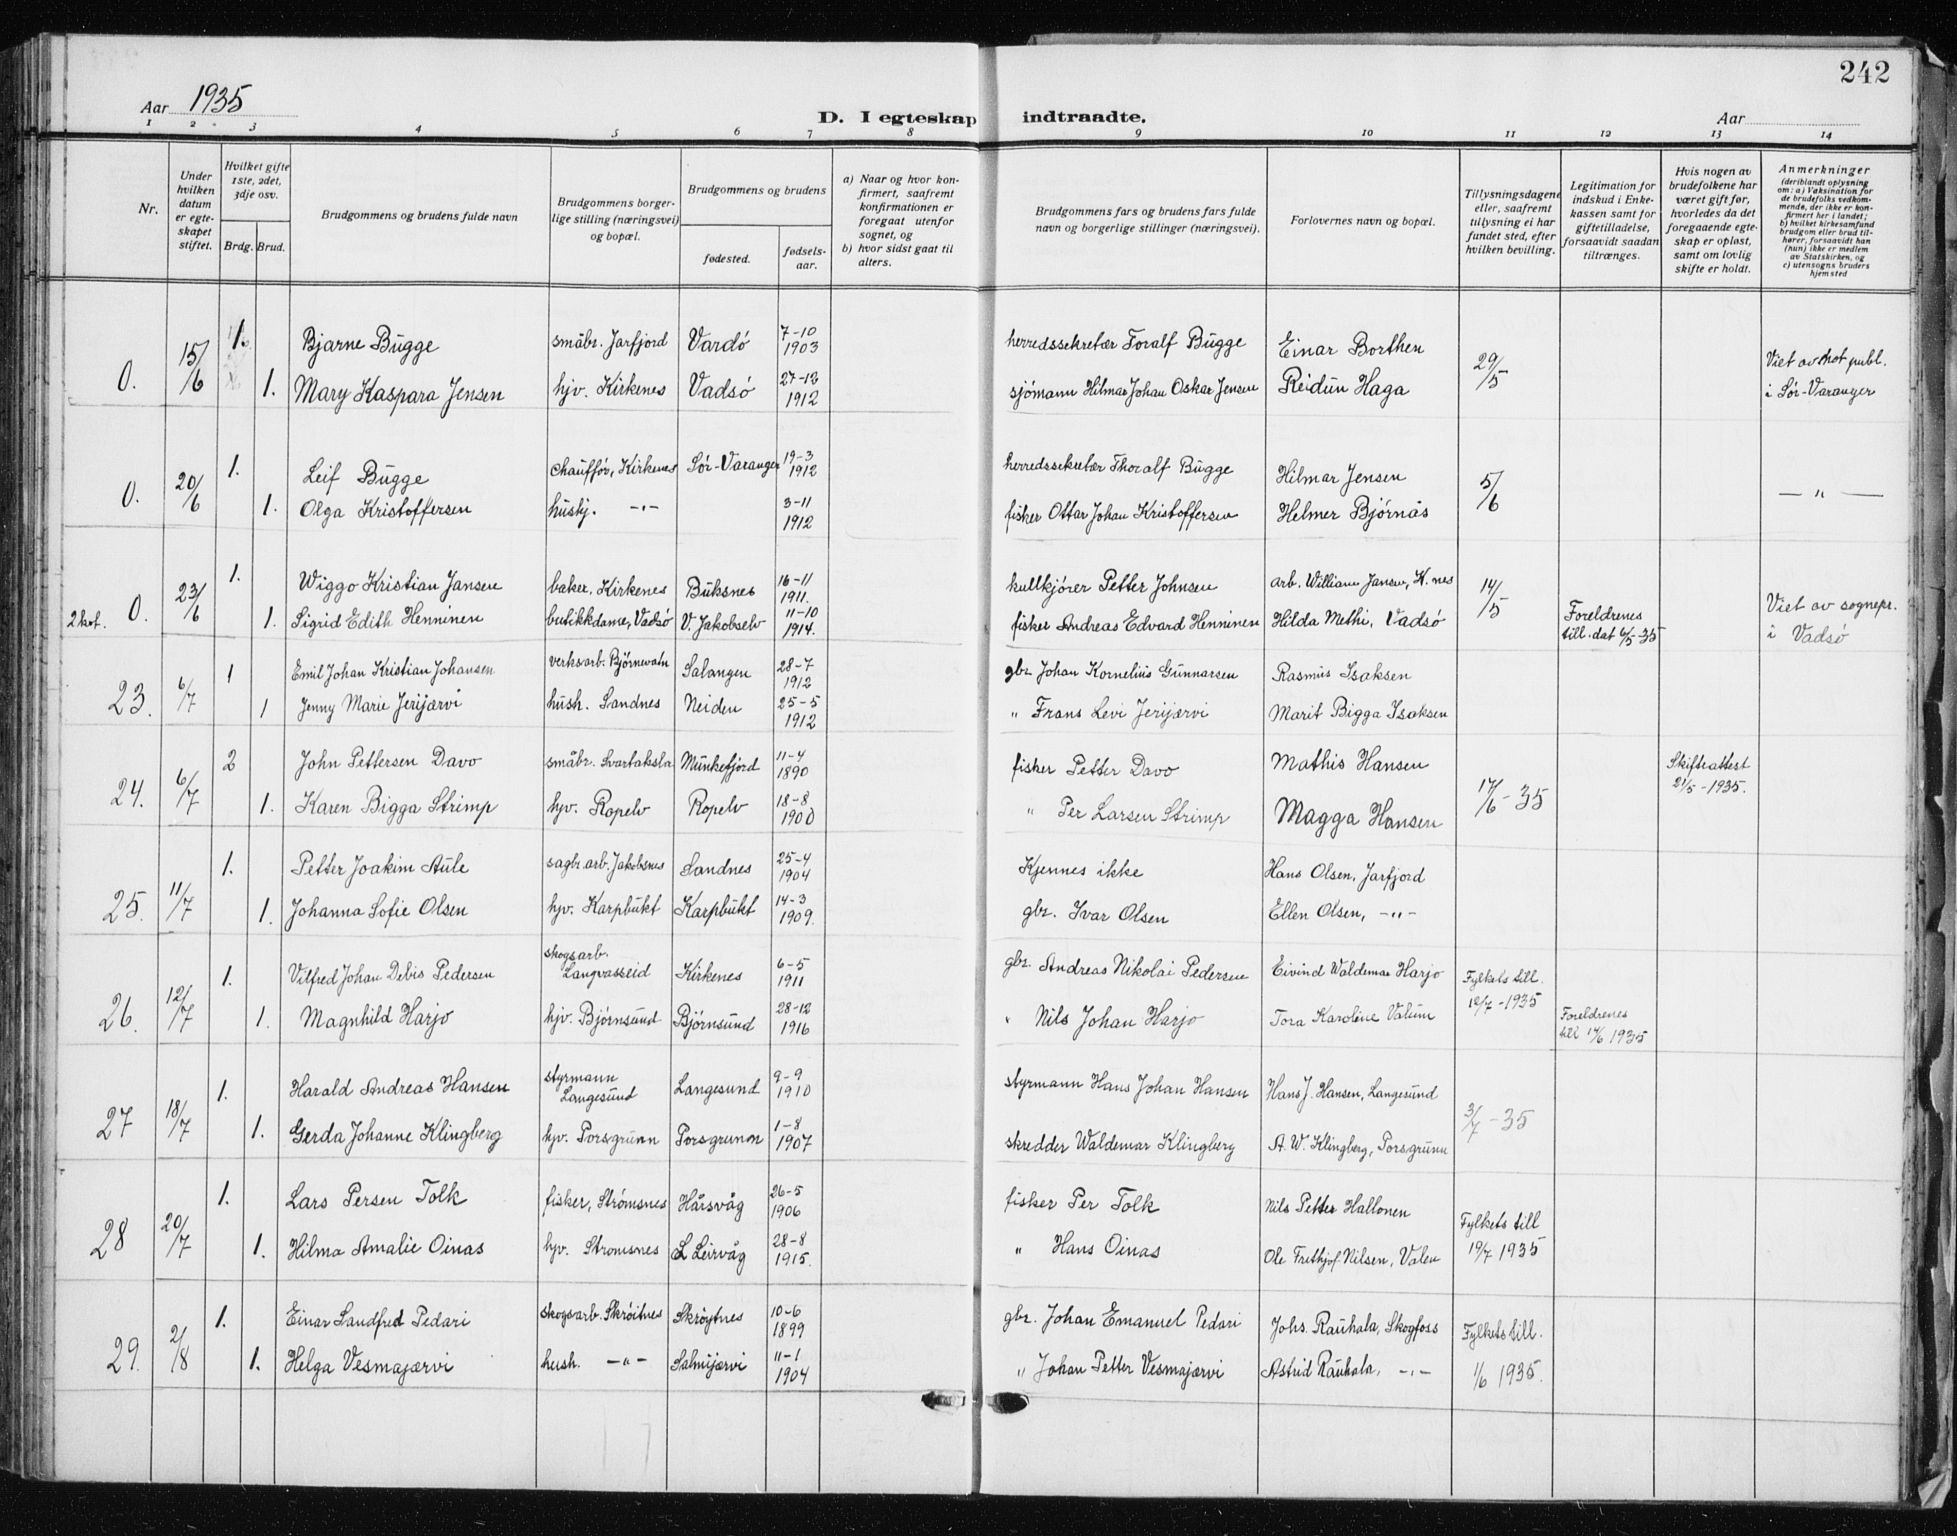 242
Aar 1935
D. I egteskap indtraadte.
Aar
1 2 3 4 5 6 7 8 9 10 11 12 13 14
Nr.
Under hvilken datum er egteskapet stiftet.
Hvilket gifte 1ste, 2det, 3dje osv.
Brdg. Brud.
Brudgommens og brudens fulde navn
Brudgommens borgerlige stilling (næringsvei) og bopæl.
Brudgommens og brudens
fødested.
fødselsaar.
a) Naar og hvor konfirmert, saafremt konfirmationen er foregaat utenfor sognet, og
b) hvor sidst gaat til alters.
Brudgommens fars og brudens fars fulde navn og borgerlige stillinger (næringsvei).
Forlovernes navn og bopæl.
Tillysningsdagene eller, saafremt tillysning ei har fundet sted, efter hvilken bevilling.
Legitimation for indskud i Enkekassen samt for giftetilladelse, forsaavidt saadan tiltrænges.
Hvis nogen av brudefolkene har været gift før, hvorledes da det foregaaende egteskap er opløst, samt om lovlig skifte er holdt.
Anmerkninger (deriblandt oplysning om: a) Vaksination for de brudefolks vedkommende, der ikke er konfirmert her i landet; b) hvilket kirkesamfund brudgom eller brud tilhører, forsaavidt han (hun) ikke er medlem av Statskirken, og c) utensogns bruders hjemsted
0. 15/6 1. Bjarne Bugge småbr. Jarfjord Vardø 7-10 1903 herredssekretær Toralf Bugge Einar Borthen 29/5 Viet av not publ. i Sør-Varanger
1. Mary Kaspara Jensen hjv. Kirkenes Vadsø 27-12 1912 sjømann Hilmar Johan Oskar Jensen Reidun Haga
0. 20/6 1. Leif Bugge chauffør, Kirkenes Sør-Varanger 19-3 1912 herredssekretær Thoralf Bugge Hilmar Jensen 5/6 — " —
1. Olga Kristoffersen hushj. -"- 3-11 1912 fisker Ottar Johan Kristoffersen Helmer Bjørnås
2 kat. 0. 23/6 1. Wiggo Kristian Jansen baker, Kirkenes Buksnes 16-11 1911. kullkjører Petter Johnsen arb. William Jansen, K.nes 14/5 Viet av sognepr. i Vadsø
1. Sigrid Edith Henninen butikkdame, Vadsø V. Jakobselv 11-10 1914. fisker Andreas Edvard Henninen Hilda Methi, Vadsø Foreldrenes till. dat 6/5-35
23. 6/7 1 Emil Johan Kristian Johansen verksarb. Bjørnevatn Salangen 28-7 1912 gbr. Johan Kornelius Gunnarsen Rasmus Isaksen
1 Jenny Marie Jerijærvi hush. Sandnes Neiden 25-5 1912 " Frans Levi Jerijærvi Marit Bigga Isaksen
24. 6/7 2 John Pettersen Davo småbr. Svartaksla Munkefjord 11-4 1890 fisker Petter Davo Mathis Hansen 17/6-35 Skifteattest 21/5-1935.
1. Karen Bigga Strimp hjv. Ropelv Ropelv 18-8 1900 " Per Larsen Strimp Magga Hansen
25. 11/7 1. Petter Joakim Aule sagbr.arb. Jakobsnes Sandnes 25-4 1904 Kjennes ikke Hans Olsen, Jarfjord
1. Johanna Sofie Olsen hjv. Karpbukt Karpbukt 14-3 1909. gbr. Ivar Olsen Ellen Olsen, -"-
26. 12/7 1. Vilfred Johan Debis Pedersen skogsarb. Langvasseid Kirkenes 6-5 1911 gbr. Andreas Nikolai Pedersen Eivind Waldemar Harjo Fylkets till. 12/7-1935
1. Magnhild Harjo hjv. Bjørnsund Bjørnsund 28-12 1916 " Nils Johan Harjo Tora Karoline Valum Foreldrenes till 14/6 1935
27 18/7 1. Harald Andreas Hansen styrmann Langesund Langesund 9-9 1910 styrmann Hans Johan Hansen Hans J. Hansen, Langesund 3/7-35
1. Gerda Johanne Klingberg hjv. Porsgrunn Porsgrunn 1-8 1907 skredder Waldemar Klingberg A. W. Klingberg, Porsgrunn
28 20/7 1. Lars Persen Tolk fisker, Strømsnes Hårsvåg 26-5 1906 fisker Per Tolk Nils Petter Hallonen Fylkets till 19/7 1935
1. Hilma Amalie Oinas hjv. Stromsnes L Leirvåg 28-8 1915. " Hans Oinas Ole Frithjof Nilsen, Valen
29. 2/8 1. Einar Sandfred Pedari skogsarb. Skrøitnes Skrøytnes 10-6 1899 gbr. Johan Emanuel Pedari Johs. Rauhala, Skogfoss Fylkets till. 1/6 1935.
1. Helga Vesmajærvi hush. -"- Salmijærvi 11-1 1904 " Johan Petter Vesmajærvi Astrid Rauhala, -"-